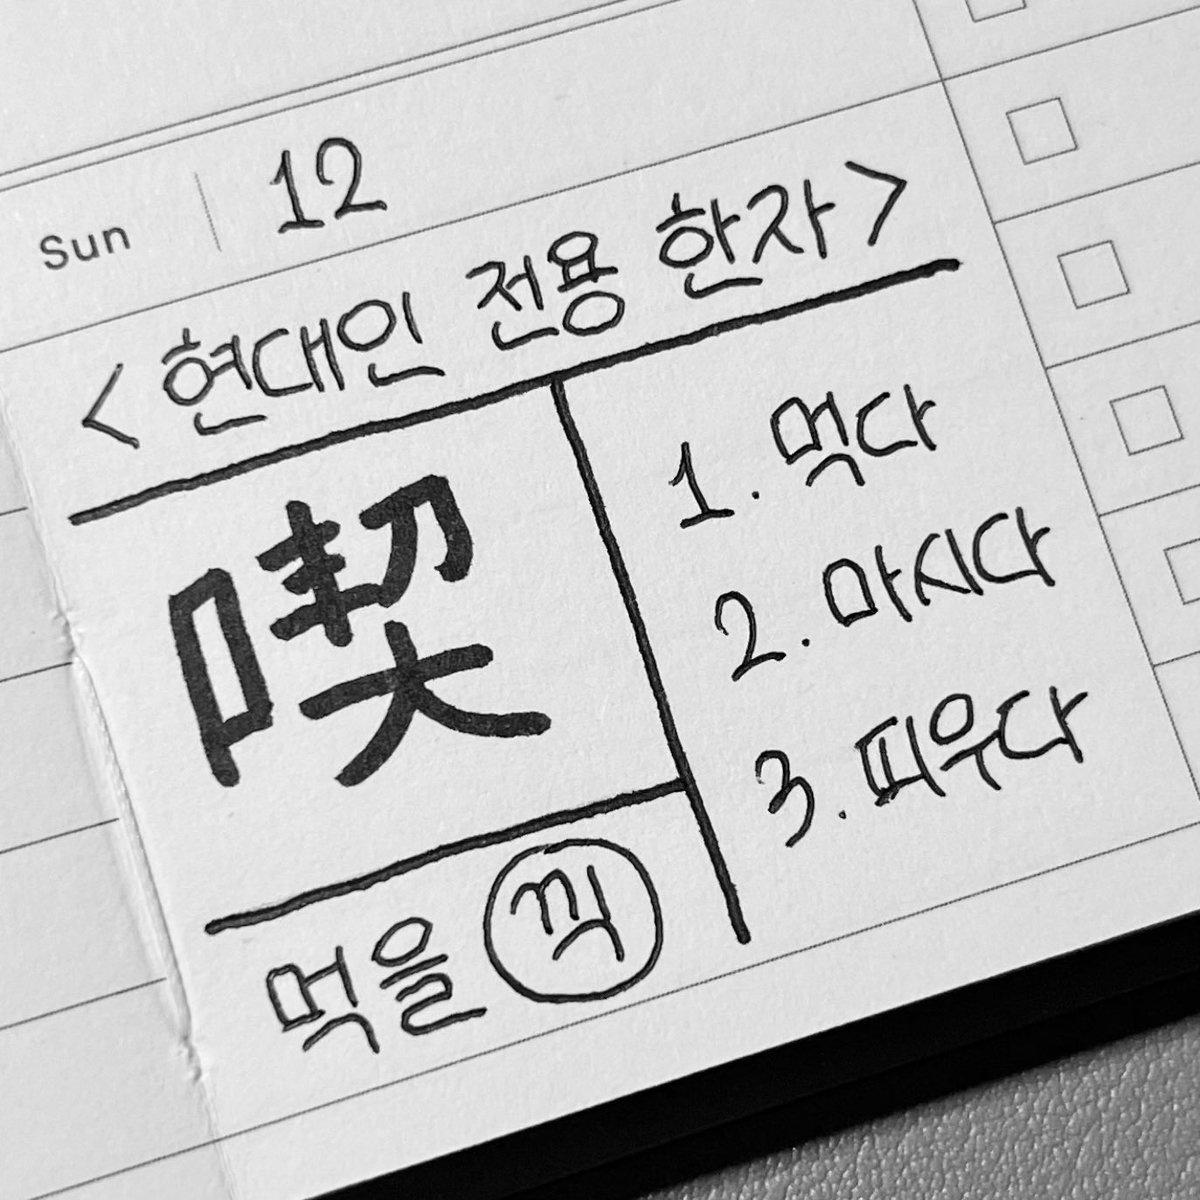 Sun 12
<현대인 전용 한자>
喫
먹을 끽
1. 먹다
2. 마시다
3. 피우다